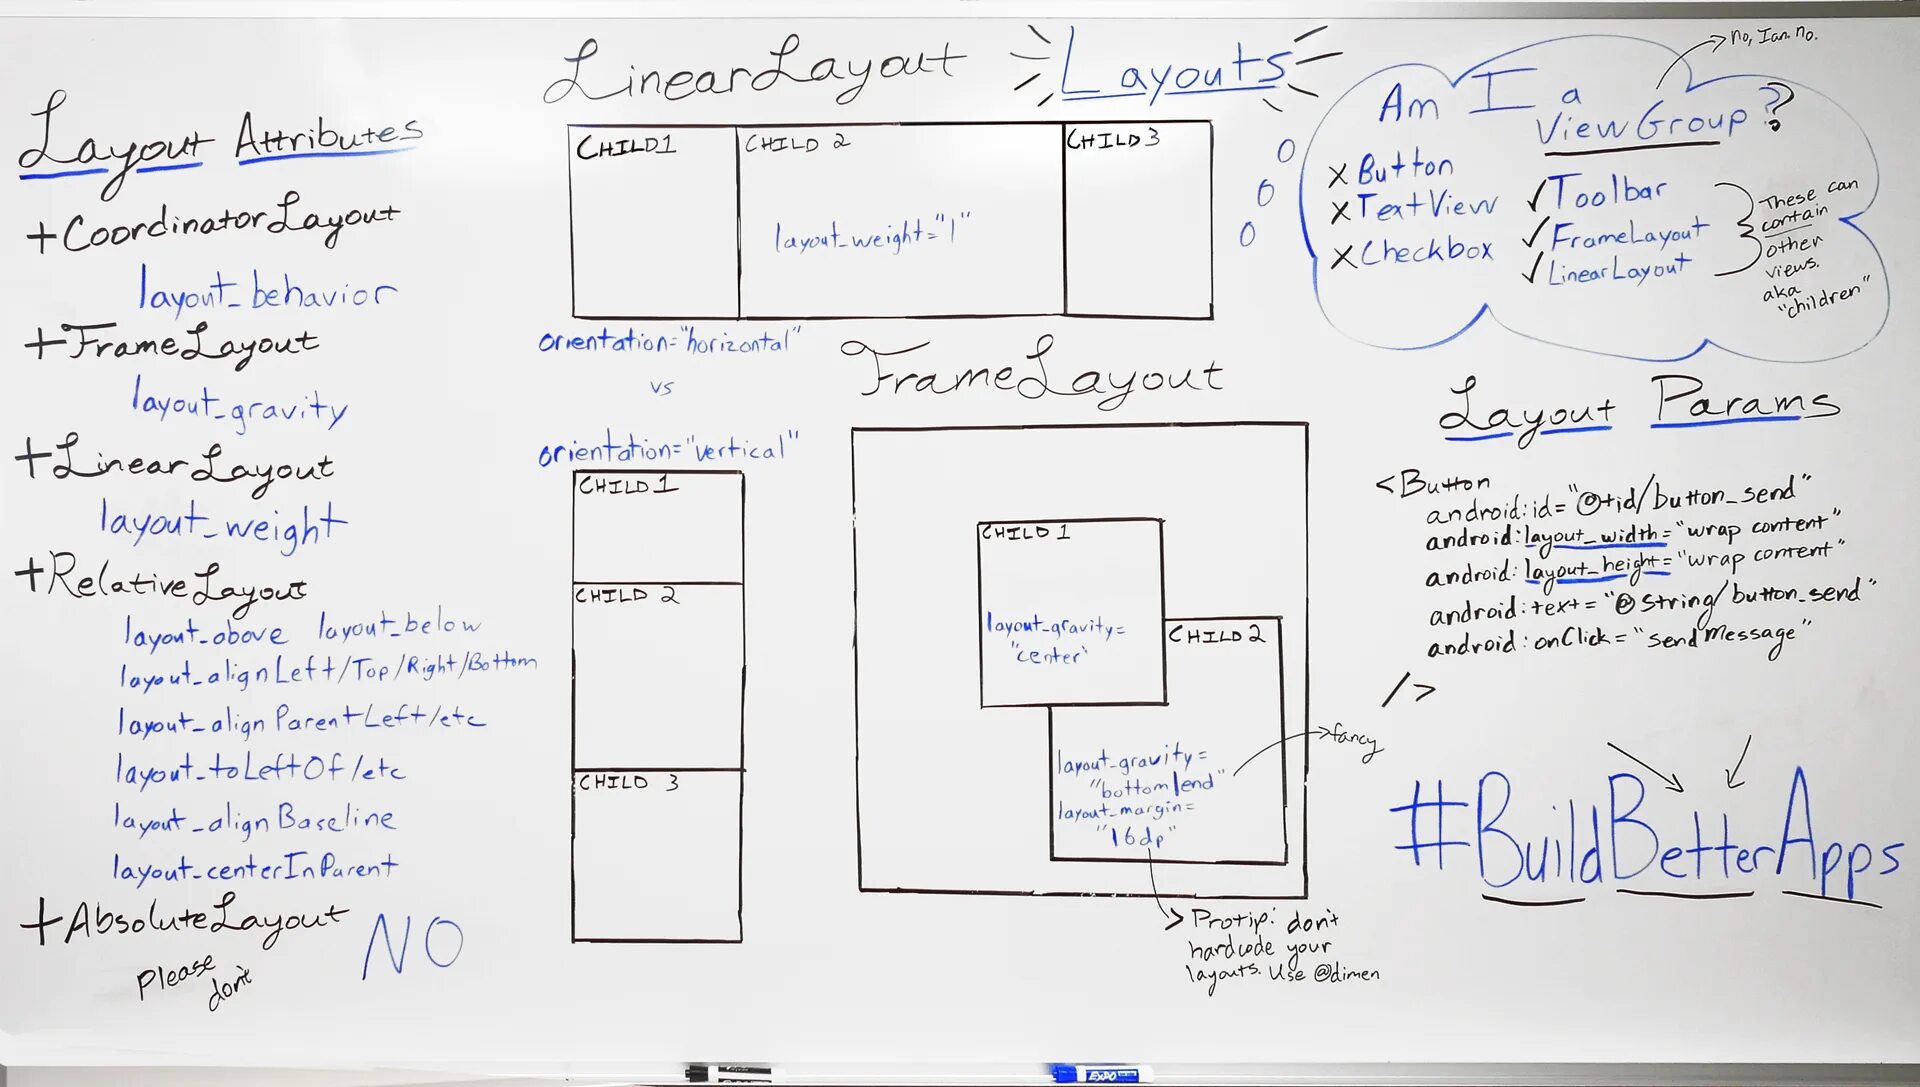 Layout Attributes
+CoordinatorLayout
layout_behavior
+FrameLayout
layout_gravity
+LinearLayout
layout_weight
+RelativeLayout
layout_above layout_below
layout_alignLeft/Top/Right/Bottom
layout_alignParentLeft/etc
layout_toLeftOf/etc
layout_alignBaseline
layout_centerInParent
+AbsoluteLayout
NO
Please
don't
LinearLayout
Layouts
CHILD1
CHILD 2
CHILD3
layout_weight="1"
orientation="horizontal"
vs
orientation="vertical"
CHILD1
CHILD 2
CHILD 3
FrameLayout
CHILD 1
layout_gravity=
"center"
CHILD2
layout_gravity=
"bottom|end"
layout_margin=
"16dp"
fancy
Protip: don't
hardcode your
layouts. Use @dimen
no, Ian. no.
Am I a
ViewGroup?
x Button
x TextView
x Checkbox
✓ Toolbar
✓ FrameLayout
✓ LinearLayout
These can
contain
other
views.
aka
"children"
Layout Params
<Button
android:id="@+id/button_send"
android:layout_width="wrap content"
android:layout_height="wrap content"
android:text="@string/button_send"
android:onClick="sendMessage"
/>
#BuildBetterApps
EXPO